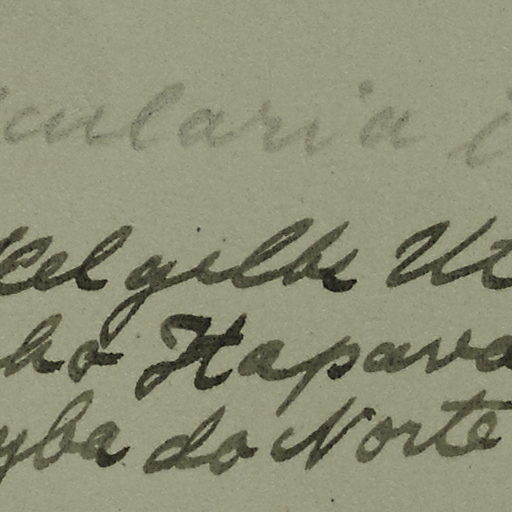 icularia i
kelgelbe Ut
ho Itapava
yba do Norte